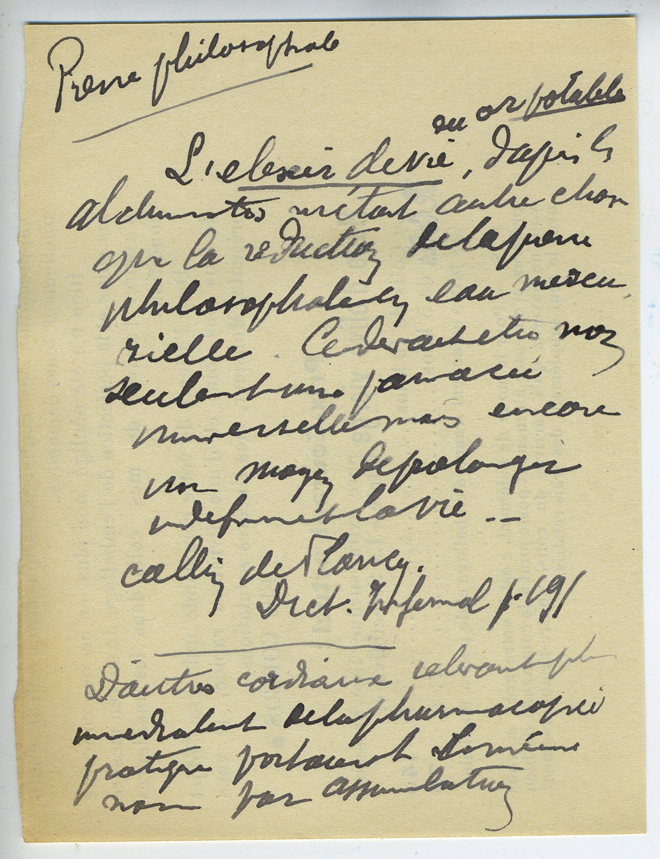 Pierre philosophale
ou or potable
L'elexir de vie, d'après les
alchimistes n'était autre chose
que la réduction de la pierre
philosophale en eau mercu
rielle. Ce devait être non
seulement une panacée
universelle mais encore
un moyen de prolonger
indéfiniment la vie --
Collin de Plancy.
Dict. Infernal p. 191
D'autres cordiaux relevant plus
immédiatement de la pharmacopée
pratique portaient le même
nom par assimilation